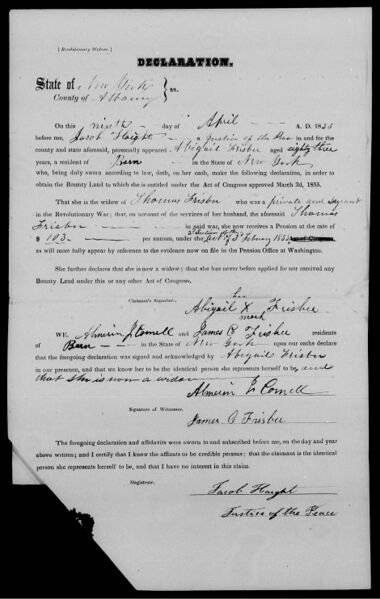 [ Revolutionary Widows ]
DECLARATION.
State of New York
County of Albany } ss.
On this ninth day of April A. D. 1855
before me, Jacob Haight a Justice of the Peace in and for the
county and state aforesaid, personally appeared Abigail Frisbee aged eighty three
years, a resident of Bern in the State of New York
who, being duly sworn according to law, doth, on her oath, make the following declaration, in order to
obtain the Bounty Land to which she is entitled under the Act of Congress approved March 3d, 1855.
That she is the widow of Thomas Frisbee who was a private and Sergeant
in the Revolutionary War; that, on account of the services of her husband, the aforesaid Thomas
Frisbee in said war, she now receives a Pension at the rate of
$ 103 per annum, under the 2d Section of the Act of 3d February 1853
as will more fully appear by reference to the evidence now on file in the Pension Office at Washington.
She further declares that she is now a widow; that she has never before applied for nor received any
Bounty Land under this or any other Act of Congress.
Claimant's Signature,
her
Abigail X Frisbee
mark
WE, Almerin J Cornell and James C Frisbee residents
of Bern in the State of New York upon our oaths declare
that the foregoing declaration was signed and acknowledged by Abigail Frisbee
in our presence, and that we know her to be the identical person she represents herself to be, and
that she is now a widow
Almerin J Cornell
Signature of Witnesses,
James C Frisbee
The foregoing declaration and affidavits were sworn to and subscribed before me, on the day and year
above written; and I certify that I know the affiants to be credible persons; that the claimant is the identical
person she represents herself to be, and that I have no interest in this claim.
Magistrate,
Jacob Haight
Justice of the Peace